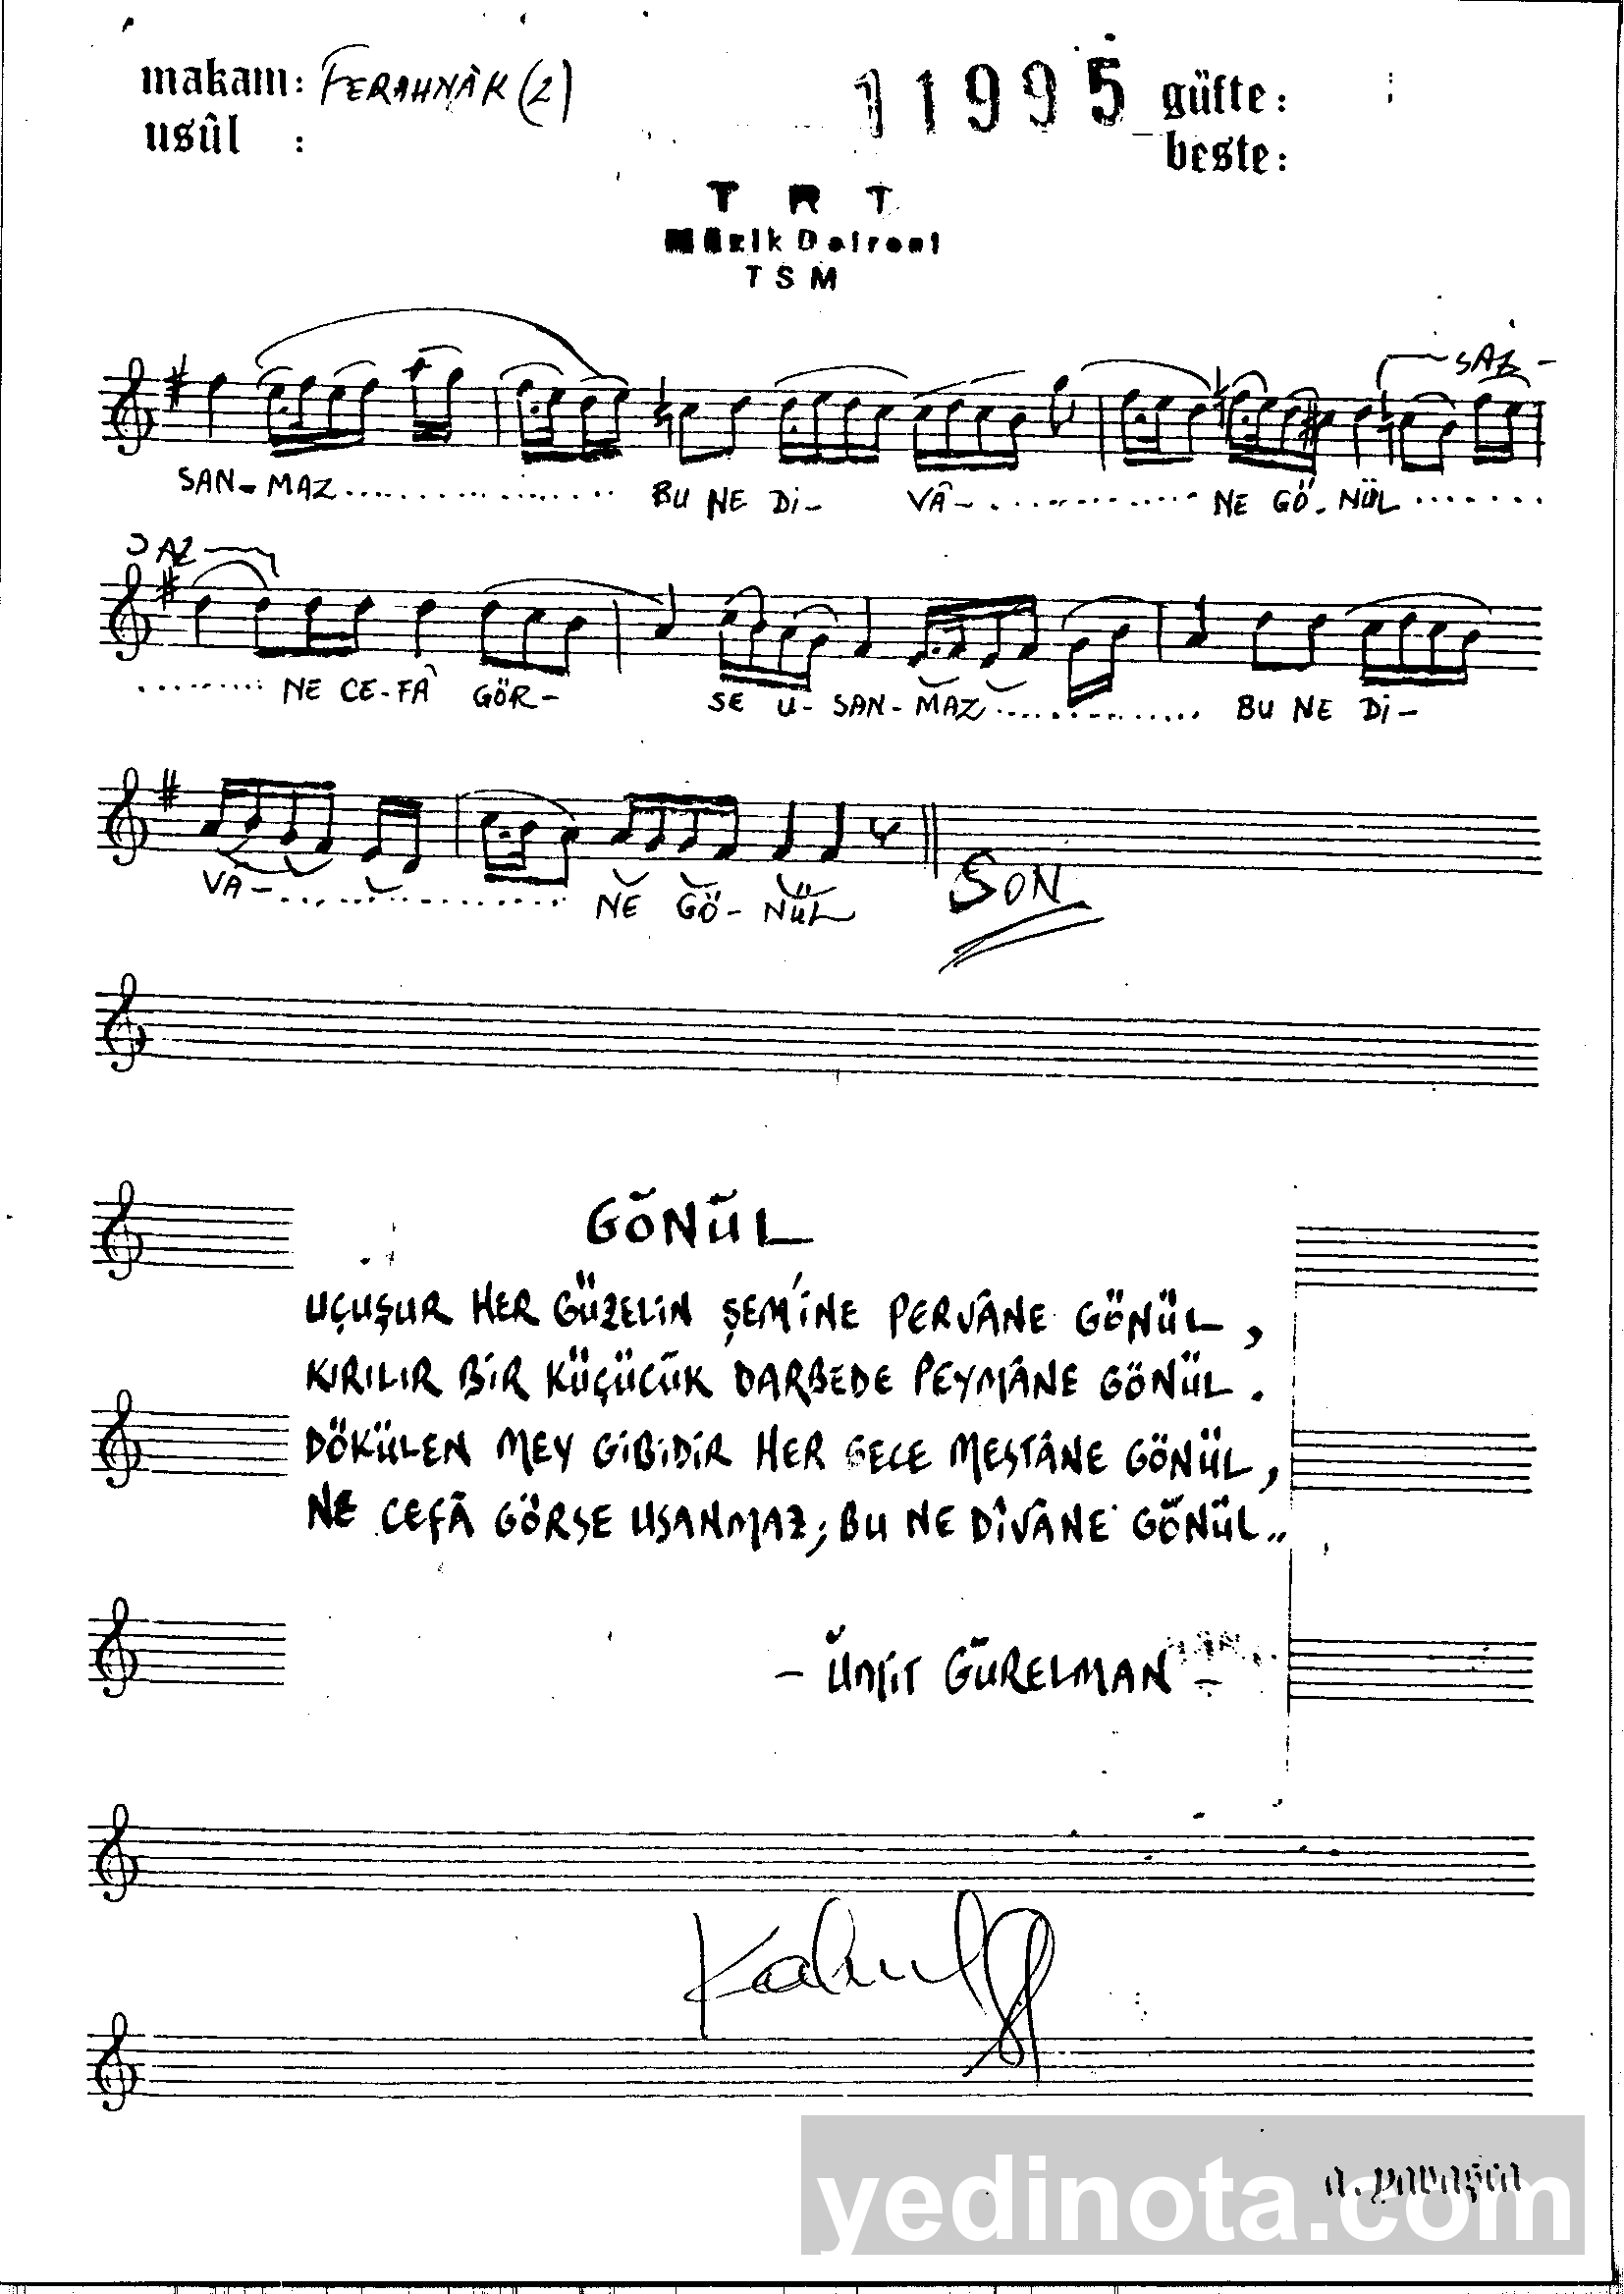 makam: FERAHNÂK (2)
11995
güfte:
usûl :
beste:
T R T
Müzik Dairesi
TSM
SAZ-
SAN-MAZ.................. BU NE Dİ- VÂ-.............. NE GÖ-NÜL.......
SAZ
.......... NE CE-FÂ GÖR- SE U-SAN-MAZ............... BU NE Dİ-
VA-.................... NE GÖ-NÜL
SON
GÖNÜL
UÇUŞUR HER GÜZELİN ŞEM'İNE PERVÂNE GÖNÜL,
KIRILIR BİR KÜÇÜCÜK DARBEDE PEYMÂNE GÖNÜL.
DÖKÜLEN MEY GİBİDİR HER GECE MESTÂNE GÖNÜL,
NE CEFÂ GÖRSE USANMAZ; BU NE DÎVÂNE GÖNÜL..
- ÜMİT GÜRELMAN -
yedinota.com